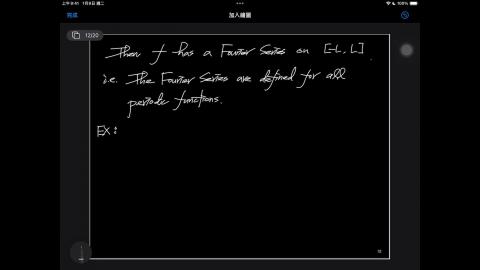 上午9:41 1月9日 週二
加入繪圖
100%
完成
12/20
Then f has a Fourier Series on [-L, L].
i.e. The Fourier Series are defined for all
periodic functions.
EX:
12